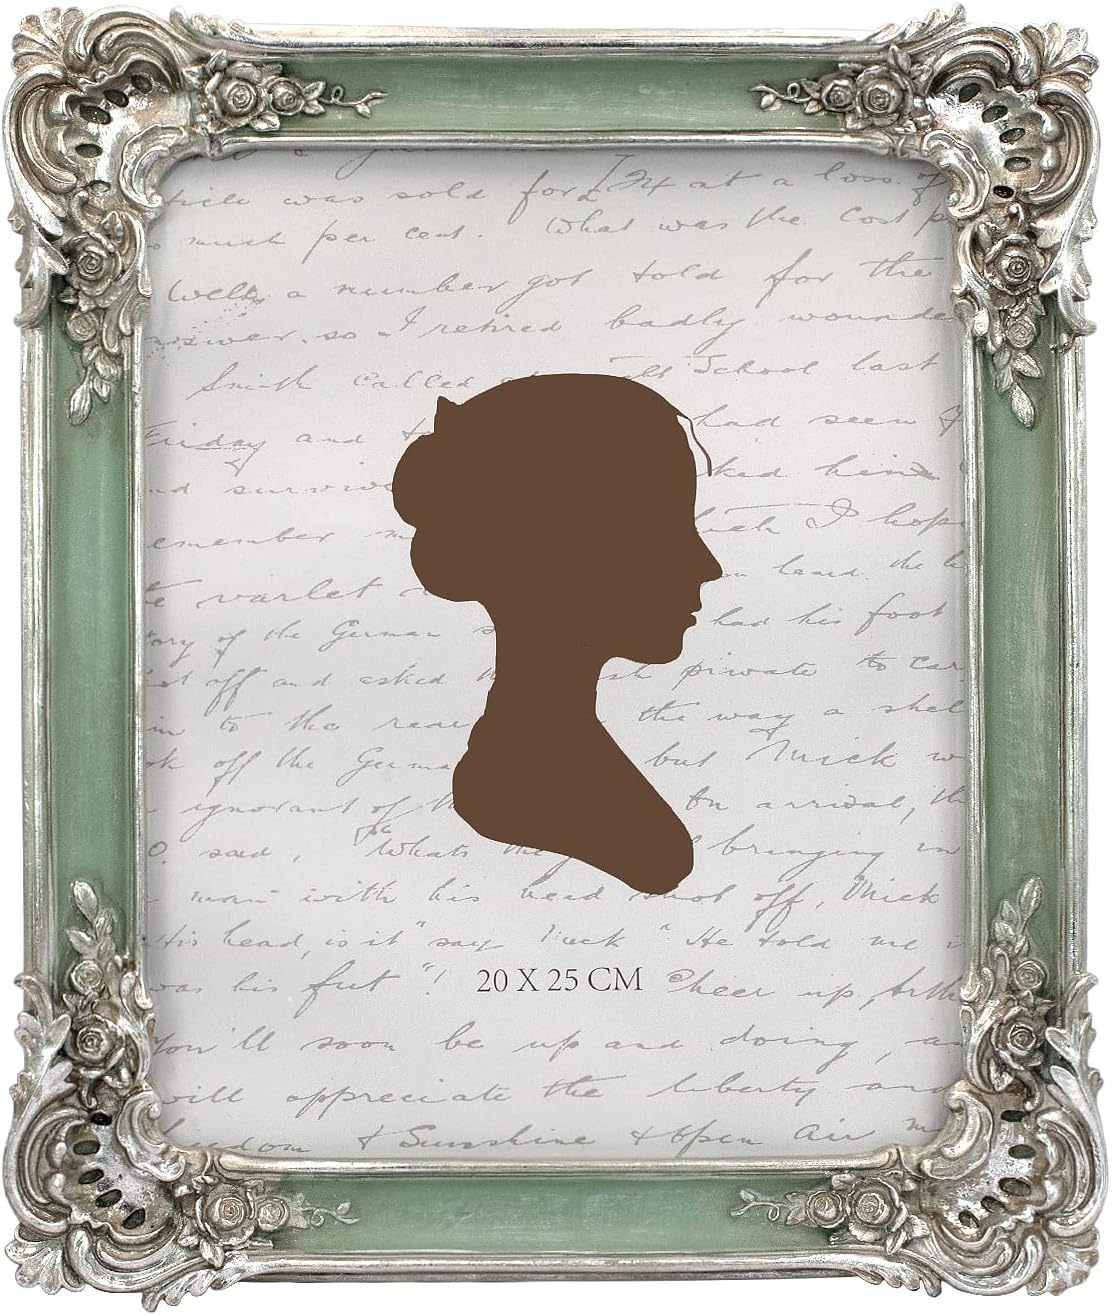 was sold for £ 74 at a loss of
much per cent. What was the cost p
Well, a number got told for the
answer, so I retired badly wounde
Smith called School last
Friday and had seen
nd surviv ked him
emember m hich I hop
te varlet you heard the
tory of the German s had his foot
ot off and asked private to car
in to the rear the way a shel
ok off the Germa but Mick w
ignorant of th On arrival, th
O. said, "Whats the bringing in
man with his head shot off, Mick
His head, is it" say Tuck "He told me i
was his fut"! Cheer up, Arth
20 X 25 CM
You'll soon be up and doing, an
will appreciate the liberty and
eedom & Sunshine & open air m